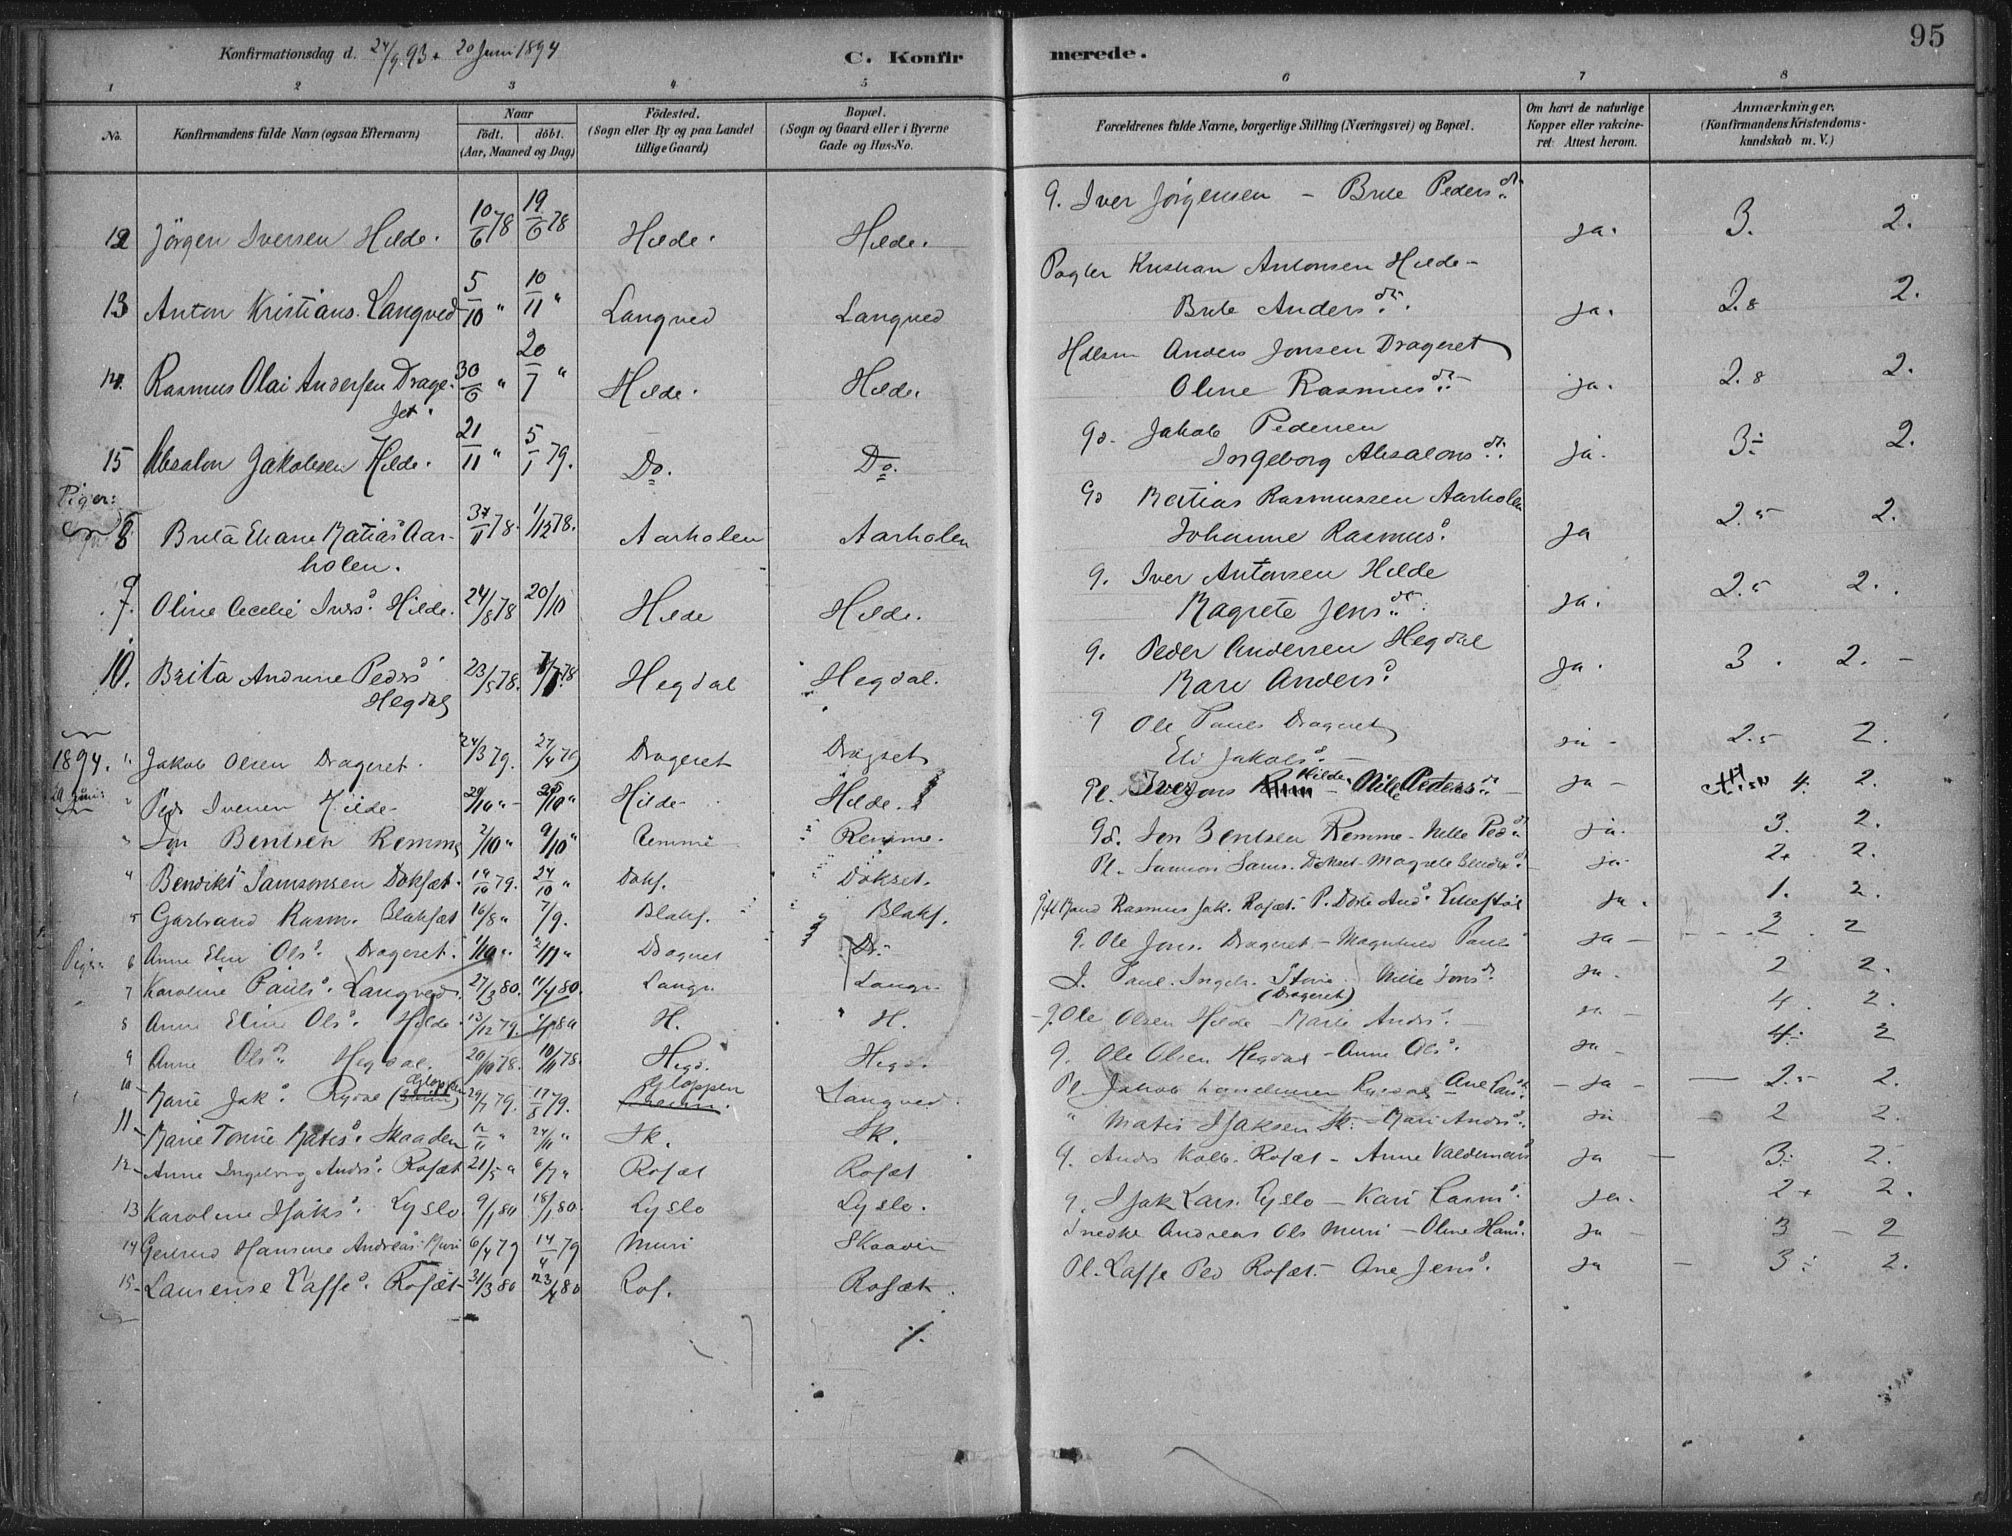 95
Konfirmationsdag d. 24/9 93 & 20 Juni 1894
C. Konfirmerede.
1 2 3 4 5 6 7 8
No.
Konfirmandens fulde Navn (ogsaa Efternavn)
Naar
födt. döbt.
(Aar, Maaned og Dag)
Födested.
(Sogn eller By og paa Landet
tillige Gaard)
Bopæl.
(Sogn og Gaard eller i Byerne
Gade og Hus-No.
Forældrenes fulde Navne, borgerlige Stilling (Næringsvei) og Bopæl.
Om havt de naturlige
Kopper eller vakcine-
ret. Attest herom.
Anmærkninger.
(Konfirmandens Kristendoms-
kundskab m. V.)
12 Jörgen Iversen Hilde. 10/6 78 19/6 78 Hilde. Hilde. G. Iver Jörgensen - Brite Pedersdr. ja. 3. 2.
13 Anton Kristians. Langved 5/10 " 10/11 " Langved Langved Kristian Antonsen Hilde -
Brite Andersdr. ja. 2.8 2.
14. Rasmus Olai Andersen Drage-
set. 30/6 " 20/7 " Hilde. Hilde. Anders Jonsen Drageset
Oline Rasmusdr. ja. 2.8 2.
15 Absalon Jakobsen Hilde. 21/11 " 5/1 79. Do. Do. Gd. Jakob Pedersen
Ingeborg Absalonsdr. ja. 3÷ 2.
Piger:
8 Brita Eliane Matiasd Aar-
holen. 78. 1/12 78. Aarholen Aarholen Gd Matias Rasmussen Aarholen
Johanne Rasmusd. ja 2.5 2.
9. Oline Cecelie Iversd. Hilde. 24/8 78 20/10 Hilde Hilde. G. Iver Antonsen Hilde
Magrete Jensdr. ja. 2.5 2.
10. Brita Andrine Pedersd
Hegdal 23/5 78. 78 Hegdal Hegdal. G. Peder Andersen Hegdal
Kari Andersd. ja. 3. 2. -
1894. 1. Jakob Olsen Drageset. 24/3 79. 27/4 79 Drageset Dragset G Ole Pauls Drageset
Eli Jakobsd. - ja - 2.5 2.
20 Juni: 2 Peder Iversen Hilde - 29/10 " - Hilde - Hilde. Pl. Iver Jons Hilde - Nille Pedersdr. - ja - 4. 2.
3 Jon Bentsen Remme 2/10 " 9/10 " Remme Remme. Gd. Jon Bentsen Remme - Nille Ped. ja. 3. 2.
4 Bendikt Samsonsen Dokset. 14/10 79. 24/10 " Doks. Dokset. Pl. Samson Sams. Dokset - Magrete Bendix. ja. 2+ 2.
5 Gartrand Rasm. Blakset 16/8 " 7/9. Blaks. Blaks. Rasmus Jak. Roset. P. Dorte And. ja. 1. 2.
Piger 6 Anne Elin Olsd. Drageset. 1/10 " 2/11 " Dragset Dr. G. Ole Jons. Drageset - Magnhild Pauls ja - 2. 2
7 Karoline Paulsd. Langved. 27/3 80. 11/4 80. Langv. Langv. J. Paul. Ingebr. Störie (Drageset) Nille Jonsd. ja. 2 2.
8 Anne Eline Olsd. Hilde. 13/12 79. H. H. G. Ole Olsen Hilde - Marie Andrsd. - ja - 4. 2.
9 Anne Olsdr. Hegdal. 20/10 78. 10/11 78. Hegd. Hegd. G. Ole Olsen Hegdal - Anne Olsd. ja - 4÷ 2
10 - Marie Jakd. Rydal (Gloppen) 29/7 79. 17/8 79. Gloppen Langved. Pl. Jakob Rydal - Ane Larsd. - ja - 2.5 2.
11. Marie Tomine Matisd. Skaaden 12/11 " 24/11 " Sk. Sk. " Matis Isaksen Sk. - Mari Andrsd. ja 2 2.
12 - Anne Ingeborg Andrsd. Roset 21/5 " 6/7 " Roset Roset G. Andr Kolb. Roset - Anne Valdemarsd ja - 3÷ 2.
13 Karoline Isaksd. Lyslo. 9/1 80 18/1 80. Lyslo Lyslo. G. Isak Lars. Lyslo - Kari Rasmd. ja. 2+ 2.
14 Gertrud Hansine Andreasd. Muri 6/4 79 14/4 79 Muri Skaaden Snedke Andreas Ols Muri - Oline Hansd. ja - 3 - 2
15 - Laurense Lassed. Roset 31/3 80 23/4 80 Ros. Roset. Pl. Lasse Ped Roset. - Ane Jensd. ja - 3÷ 2.